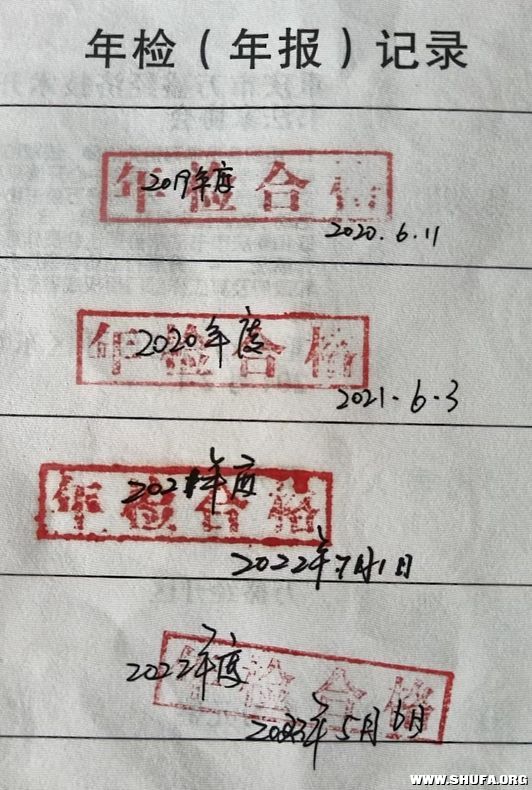 年检（年报）记录
年检合格
2019年度
2020.6.11
年检合格
2020年度
2021.6.3
年检合格
2021年度
2022年7月1日
年检合格
2022年度
2023年5月6月
WWW.SHUFA.ORG